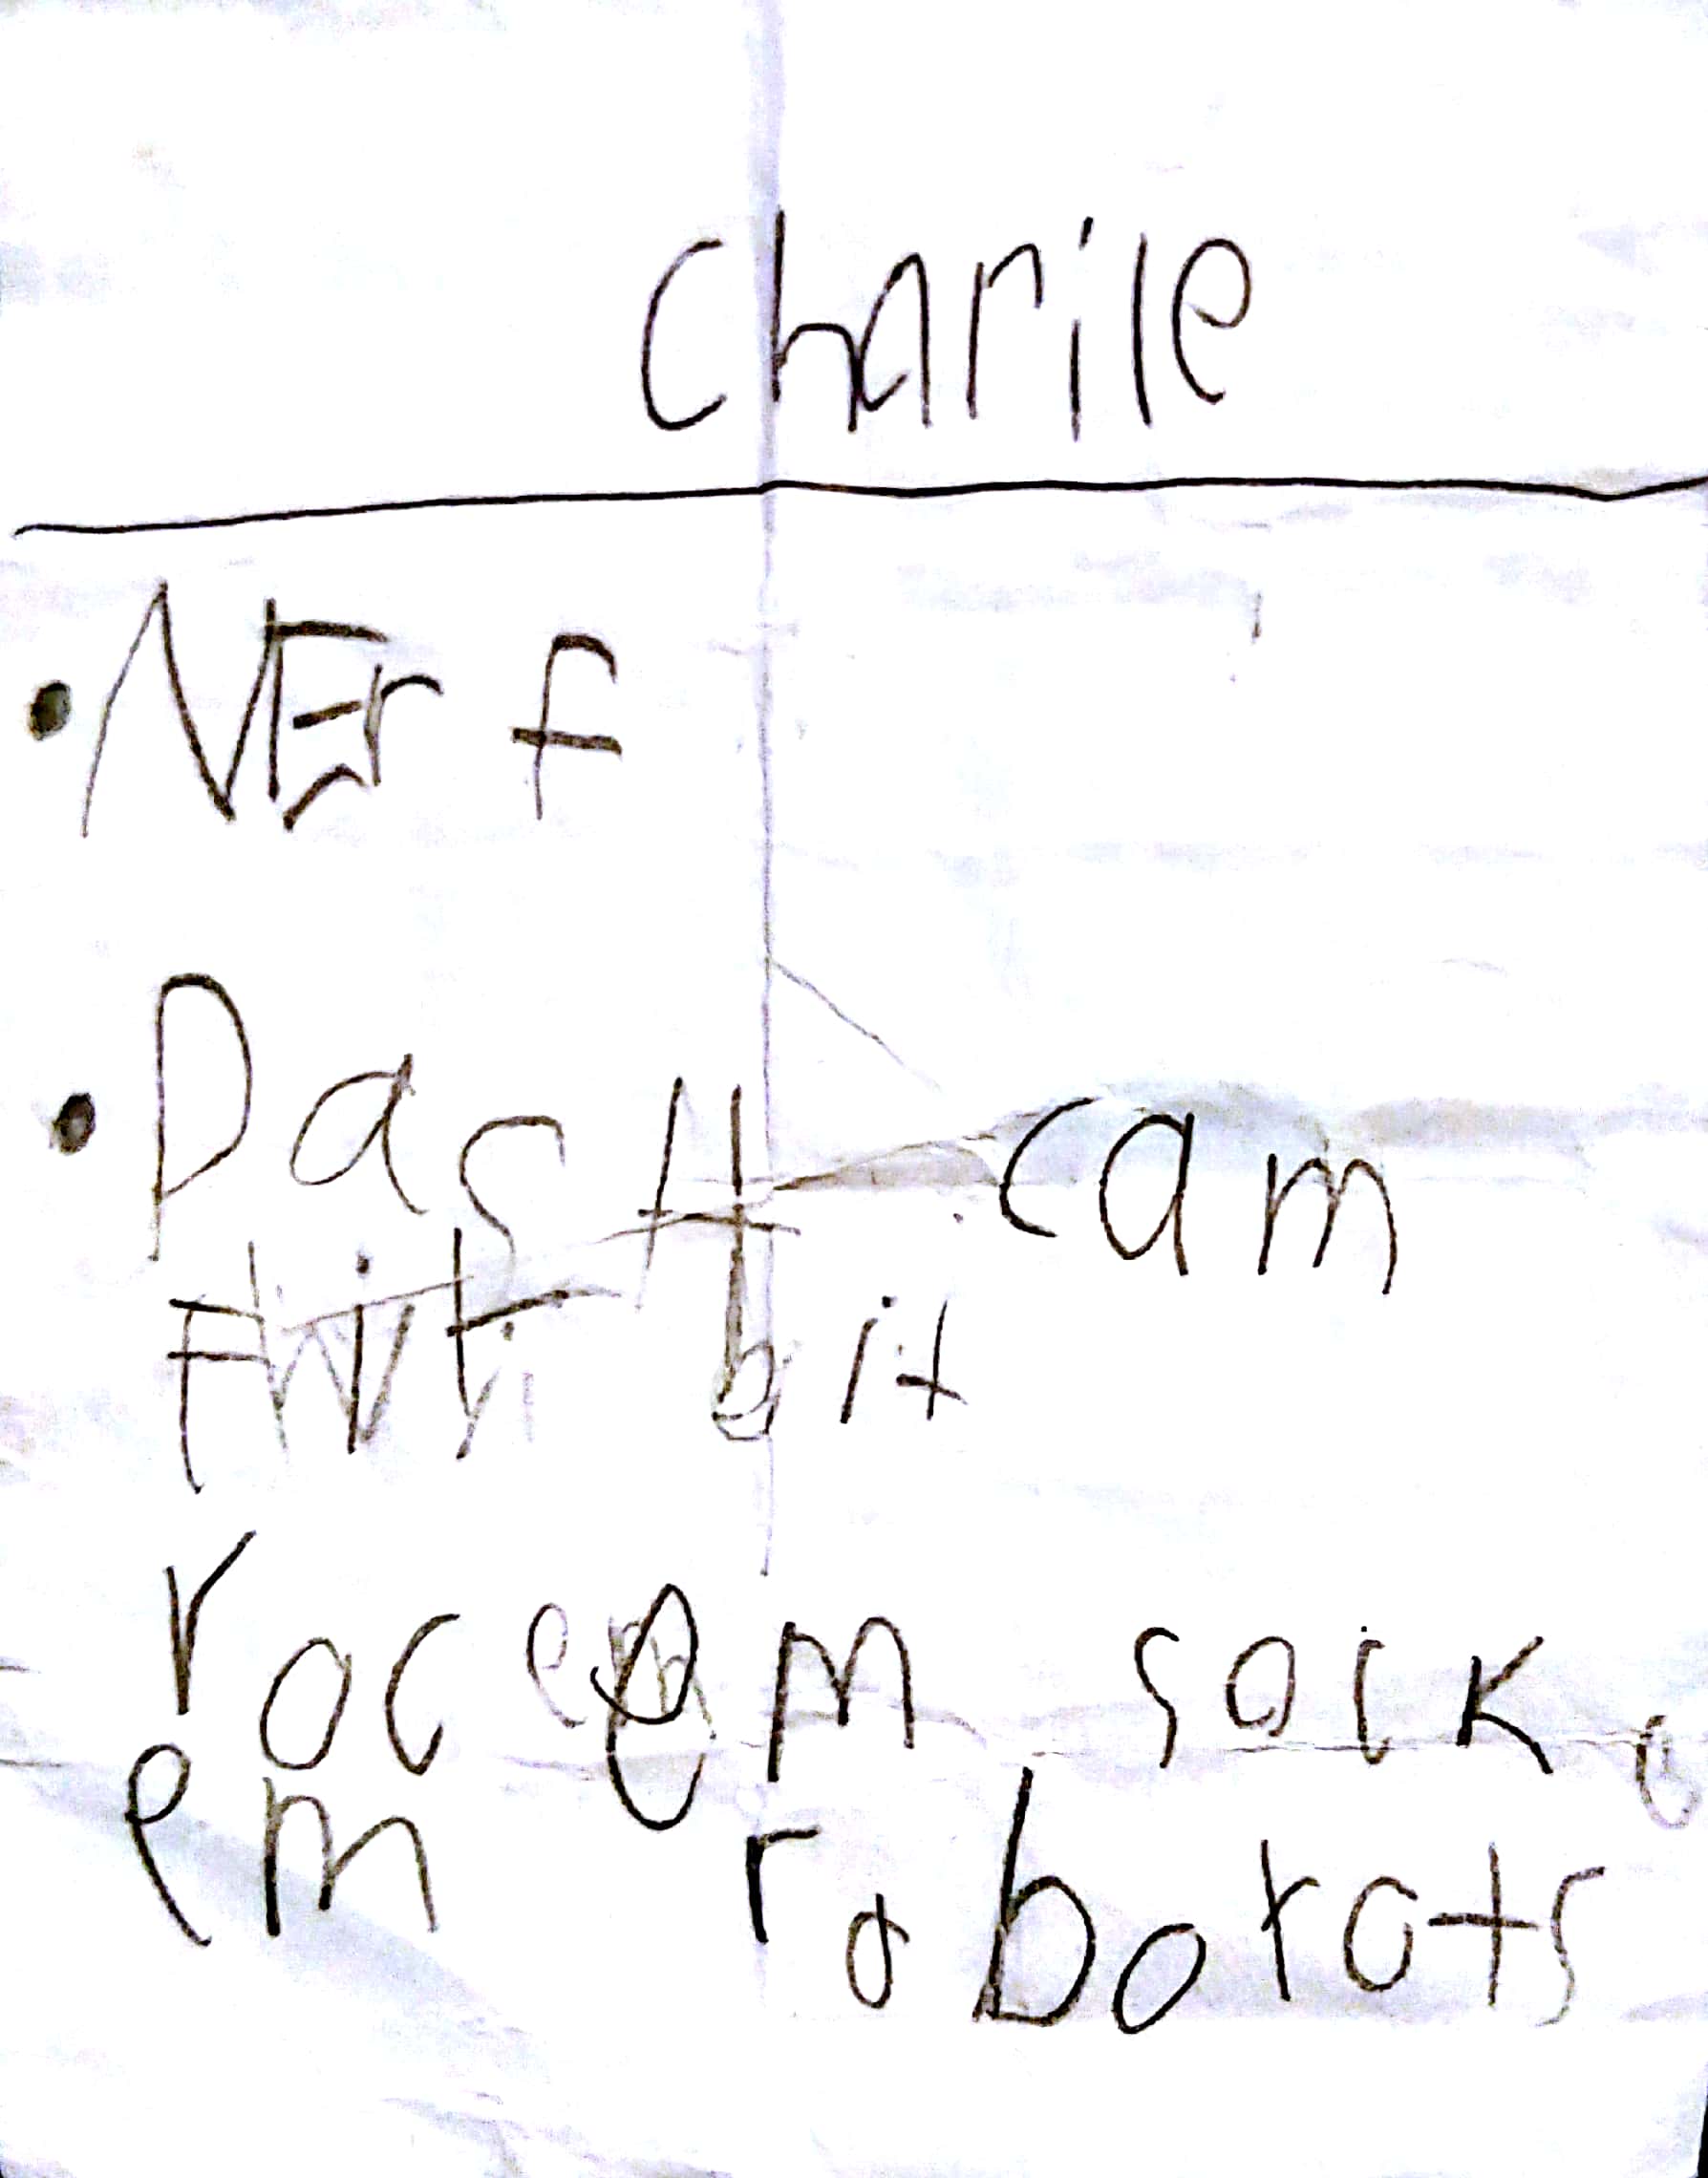 Charile
• NErf
• Dash cam
bit
roc em sock
em robotots